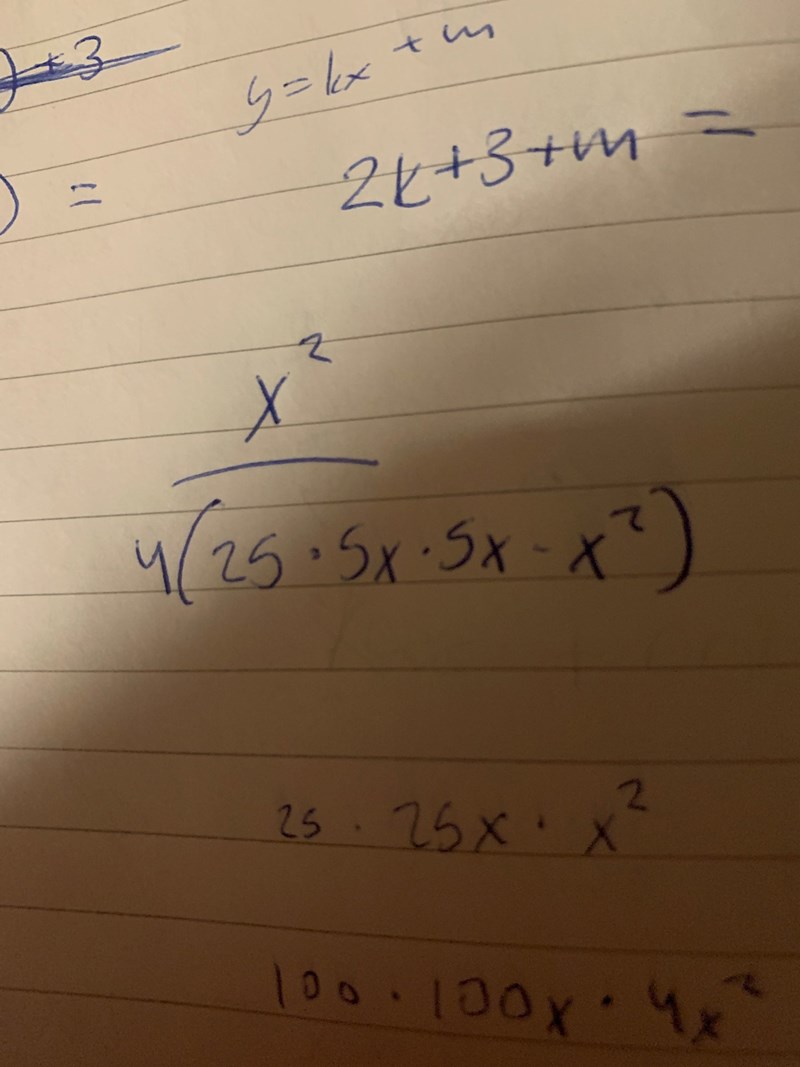 ) + 3
y = kx + m
) =
2k + 3 + m =
x²
4(25 · 5x · 5x - x²)
25 · 25x · x²
100 · 100x · 4x²